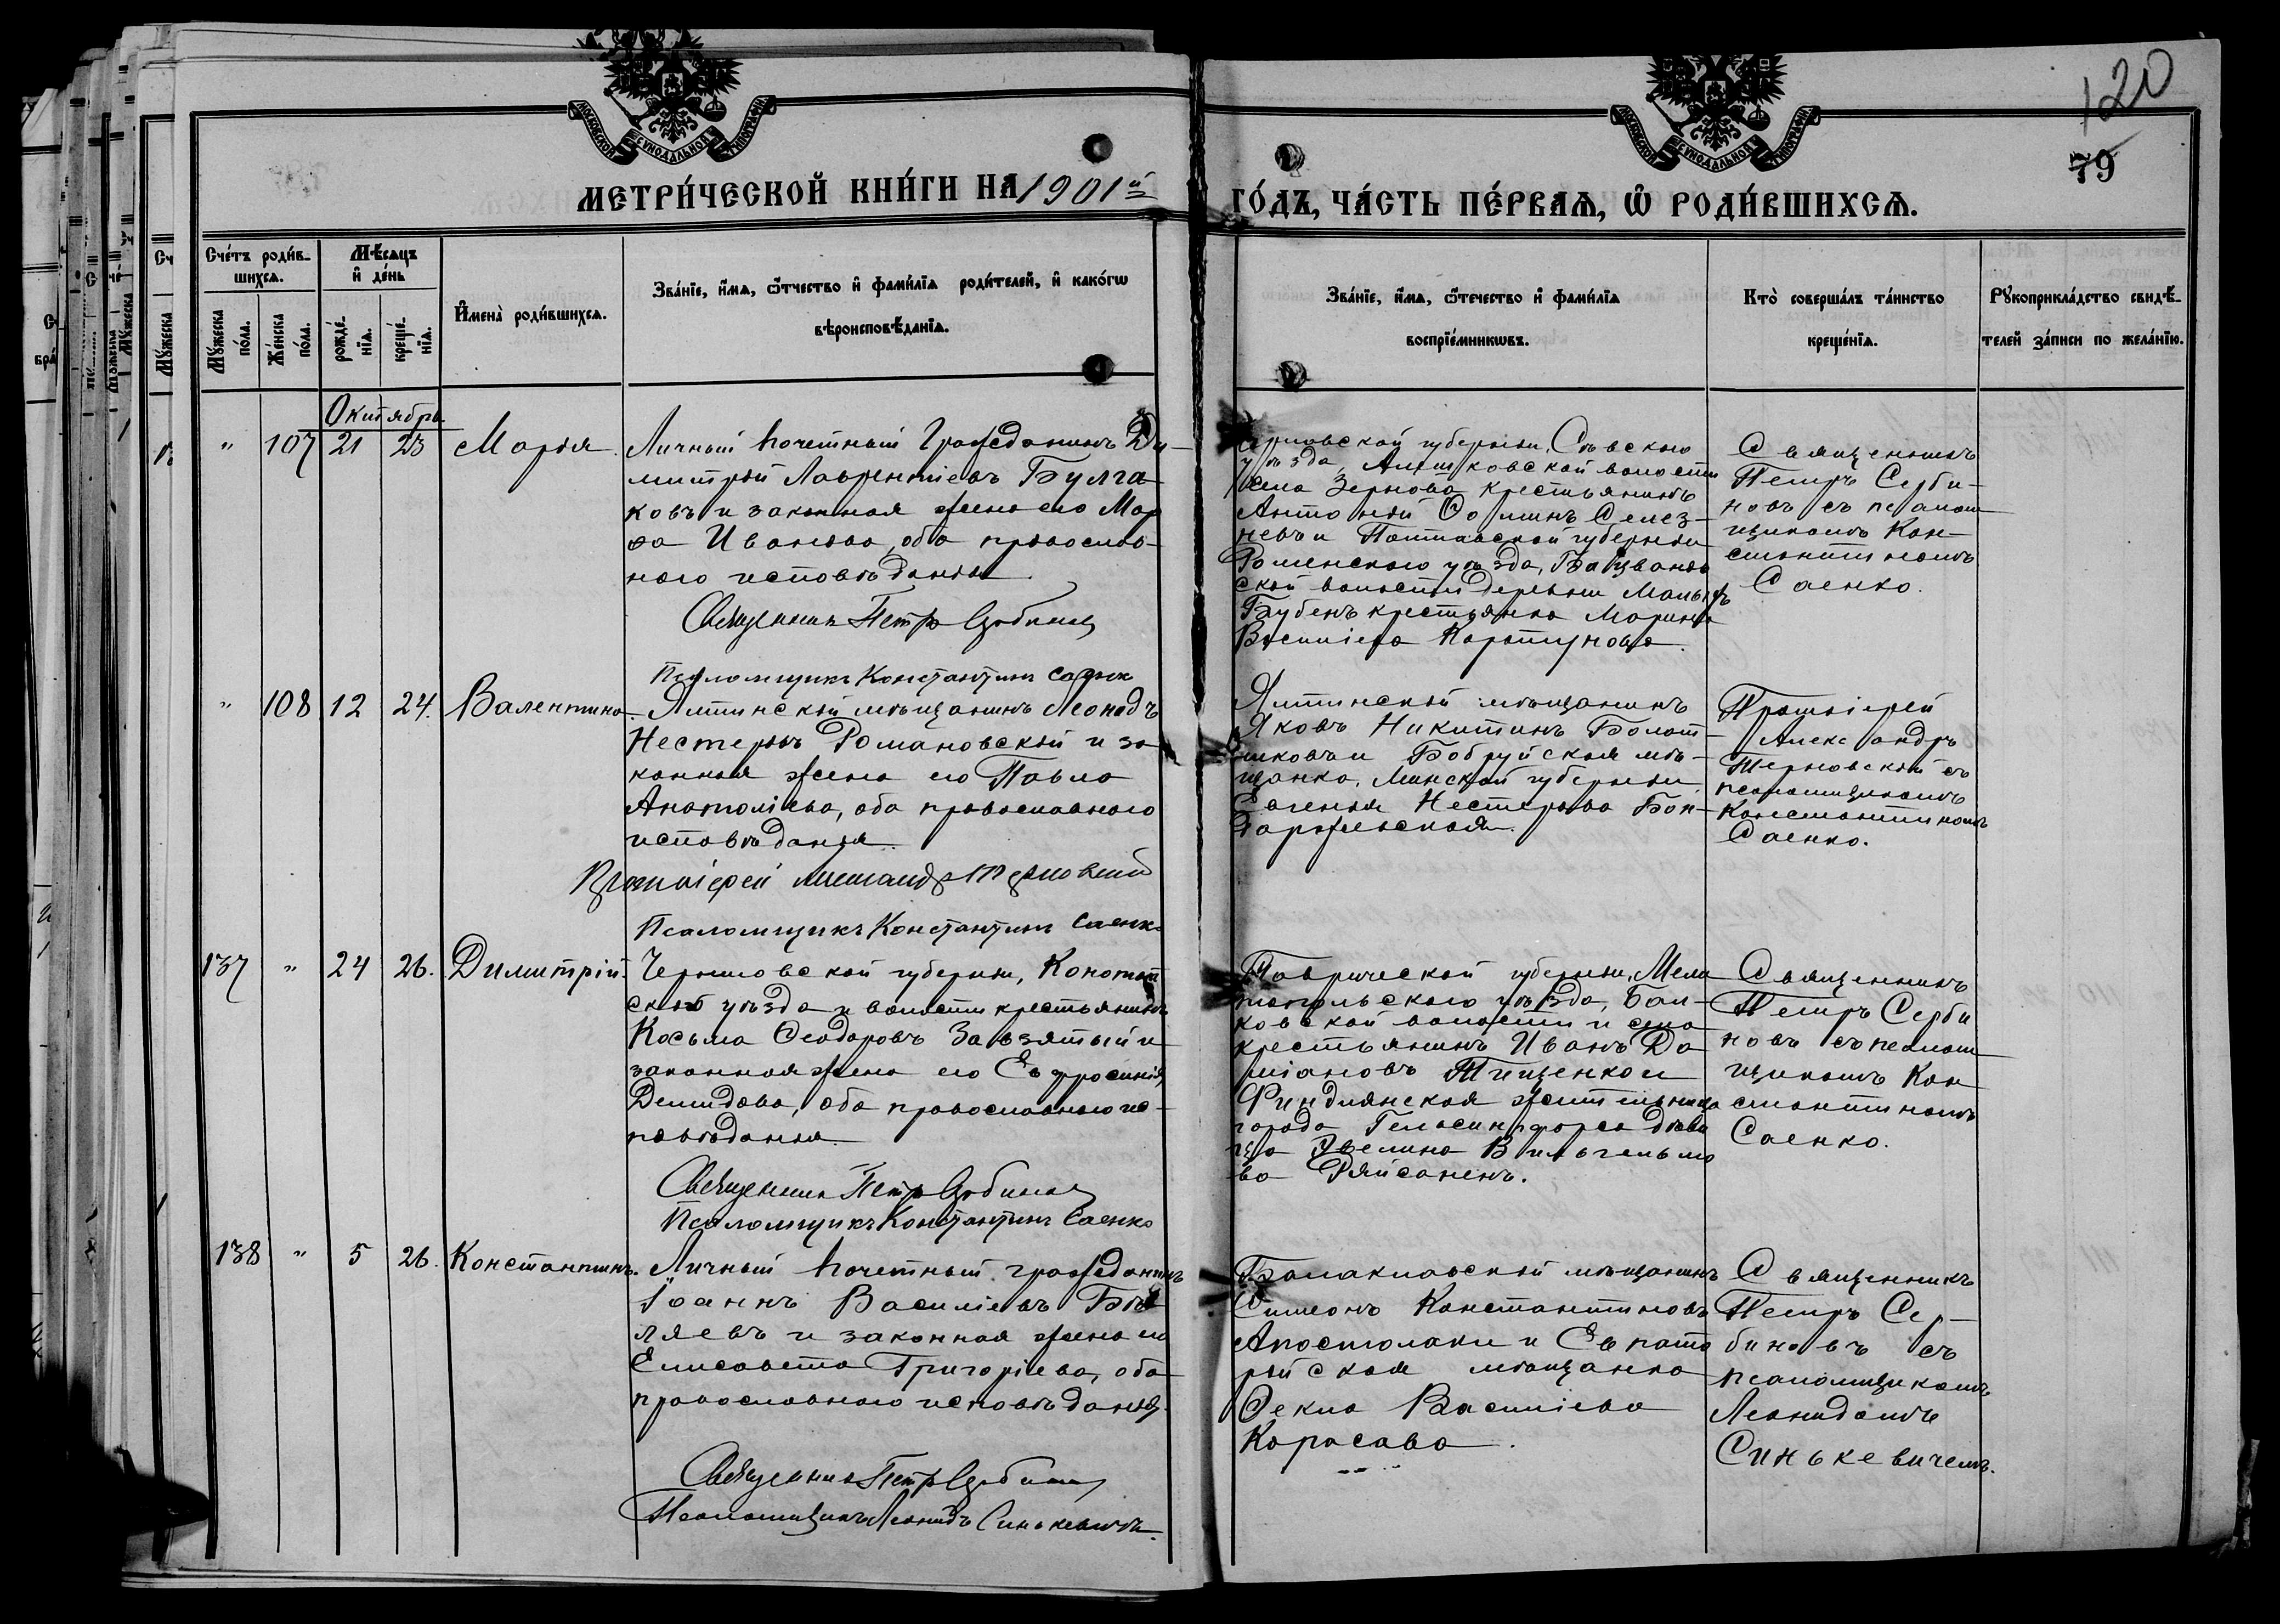 120
79
МОСКОВСКОЙ СѴНОДАЛЬНОЙ ТИПОГРАФІИ
МОСКОВСКОЙ СѴНОДАЛЬНОЙ ТИПОГРАФІИ
МЕТРИ́ЧЕСКОЙ КНИ́ГИ НА 1901й
ГО́ДЪ, ЧА́СТЬ ПЕ́РВАѦ, Ѡ РОДИ́ВШИХСѦ.
Сче́тъ роди́в-
шихсѧ.
Мꙋ́жеска
по́ла.
Же́нска
по́ла.
Мѣ́сѧцъ
и҆ де́нь
рожде́-
нїѧ.
креще́-
нїѧ.
И҆мена̀ роди́вшихсѧ.
Зва́нїе, и҆́мѧ, ѻ҆́тчество и҆ фами́лїѧ роди́телей, и҆ како́гѡ
вѣроисповѣ́данїѧ.
Зва́нїе, и҆́мѧ, ѻ҆те́чество и҆ фами́лїѧ
воспрїе́мникѡвъ.
Кто̀ соверша́лъ та́инство
креще́нїѧ.
Рꙋкоприкла́дство свидѣ́-
телей за́писи по жела́нїю.
Октябрь
" 107 21 23 Марія.
Личный почетный Гражданинъ Ди-
митрій Лаврентіевъ Булга-
ковъ и законная жена его Мар
ѳа Иванова, оба православ-
наго исповѣданія.
Священникъ Петръ Сербиновъ
Псаломщикъ Константинъ Саенко
Орловской губерніи, Сѣвскаго
уѣзда, Алешковской волости
села Зернова крестьянинъ
Антоній Ѳоминъ Селез-
невъ и Полтавской губерніи
Роменскаго уѣзда,
ской волости деревни Малыхъ
Бубенъ крестьянка Марина
Василіева Коротунова.
Священникъ
Петръ Серби-
новъ съ псалом
щикомъ Кон-
стантиномъ
Саенко.
" 108 12 24. Валентина.
Ялтинскій мѣщанинъ Леонидъ
Нестеровъ Романовскій и за
конная жена его Павла
Анатоліева, оба православнаго
исповѣданія.
Протоіерей Александръ Терновскій
Псаломщикъ Константинъ Саенко
Ялтинскій мѣщанинъ
Яковъ Никитинъ Болот-
никовъ и Бобруйская мѣ-
щанка, Минской губерніи
Евгенія Нестерова Бон-
даржевская.
Протоіерей
Александръ
Терновскій съ
псаломщикомъ
Константиномъ
Саенко.
137 " 24 26. Димитрій.
Черниговской губерніи, Конотоп
скаго уѣзда и волости крестьянинъ
Косьма Ѳеодоровъ Завзятый и
законная жена его Евфросинія
Демидова, оба православнаго ис-
повѣданія.
Священникъ Петръ Сербиновъ
Псаломщикъ Константинъ Саенко
Таврической губерніи, Мели
топольскаго уѣзда, Бал-
ковской волости и села
крестьянинъ Иванъ Да
міановъ Тищенко и
Финдлянская жительница
города Гельсингфорса дѣви
ца Эвелина Вильгельмо
ва Ряйсаненъ.
Священникъ
Петръ Серби
новъ съ псалом
щикомъ Кон
стантиномъ
Саенко.
138 " 5 26. Константинъ.
Личный почетный гражданинъ
Іоаннъ Василіевъ Бѣ-
ляевъ и законная жена его
Елисавета Григоріева, оба
православнаго исповѣданія.
Священникъ Петръ Сербиновъ
Псаломщикъ Леонидъ Синькевичъ.
Балаклавскій мѣщанинъ
Симеонъ Константиновъ
Апостолаки и Евпато
рійская мѣщанка
Ѳекла Василіева
Карасава.
Священникъ
Петръ Сер-
биновъ съ
псаломщикомъ
Леонидомъ
Синькевичемъ.